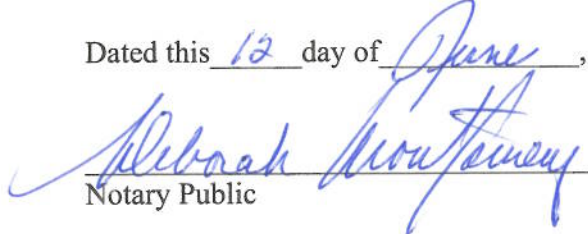 Dated this 12 day of June,
Deborah Montgomery
Notary Public